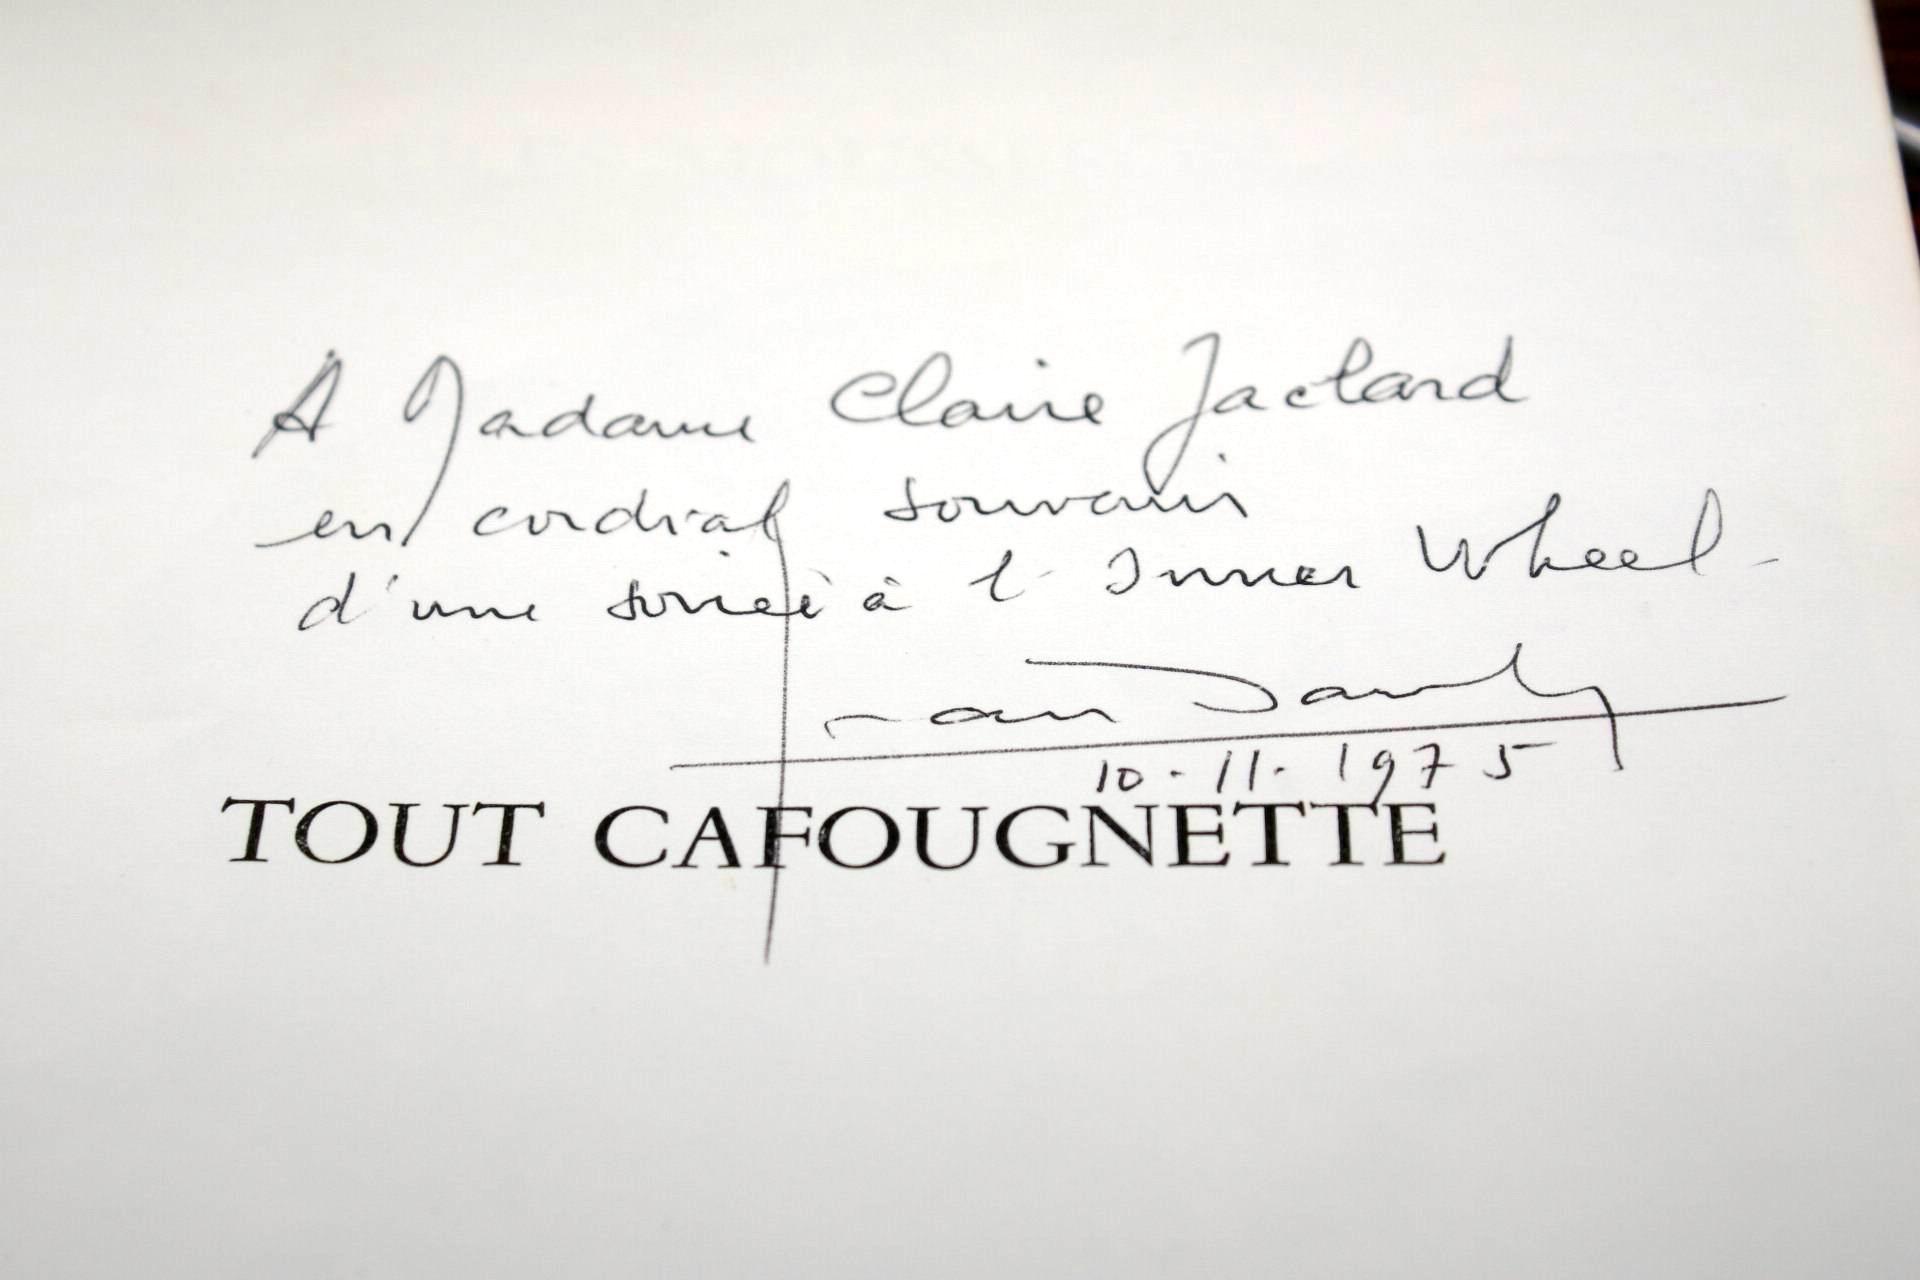 A Madame Claire Jactard
en cordial souvenir
d'une soirée à l'Inner Wheel-
Jean Dauby
10.11.1975
TOUT CAFOUGNETTE